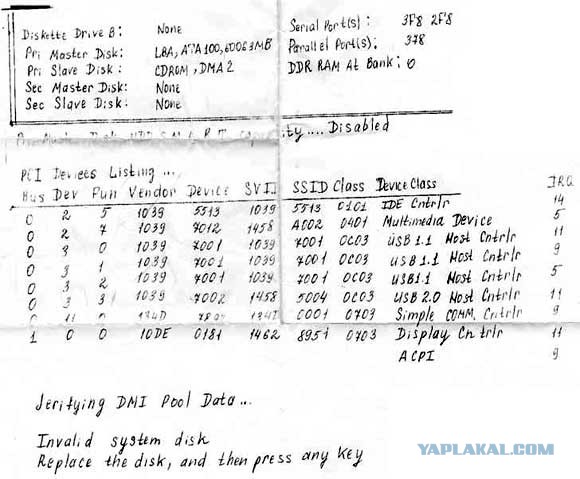 Diskette Drive B: None Serial Port(s): 3F8 2F8
Pri Master Disk: LBA, ATA 100, 60063MB Parallel Port(s): 378
Pri Slave Disk: CDROM, DMA2 DDR RAM At Bank: 0
Sec Master Disk: None
Sec Slave Disk: None
Disk HDD S.M.A.R.T. .... Disabled
PCI Devices Listing ...
Bus Dev Fun Vendor Device SVID SSID Class Device Class IRQ
0 2 5 1039 5513 1039 5513 0101 IDE Cntrlr 14
0 2 7 1039 7012 1458 A002 0401 Multimedia Device 5
0 3 0 1039 7001 1039 7001 0C03 USB 1.1 Host Cntrlr 11
0 3 1 1039 7001 1039 7001 0C03 USB 1.1 Host Cntrlr 9
0 3 2 1039 7001 1039 7001 0C03 USB 1.1 Host Cntrlr 5
0 3 3 1039 7002 1458 5004 0C03 USB 2.0 Host Cntrlr 11
0 11 0 134D 0001 0703 Simple COMM. Cntrlr 9
1 0 0 10DE 0181 1462 8951 0703 Display Cntrlr 11
ACPI 9
Jerifying DMI Pool Data ...
Invalid system disk
Replace the disk, and then press any key
YAPLAKAL.COM